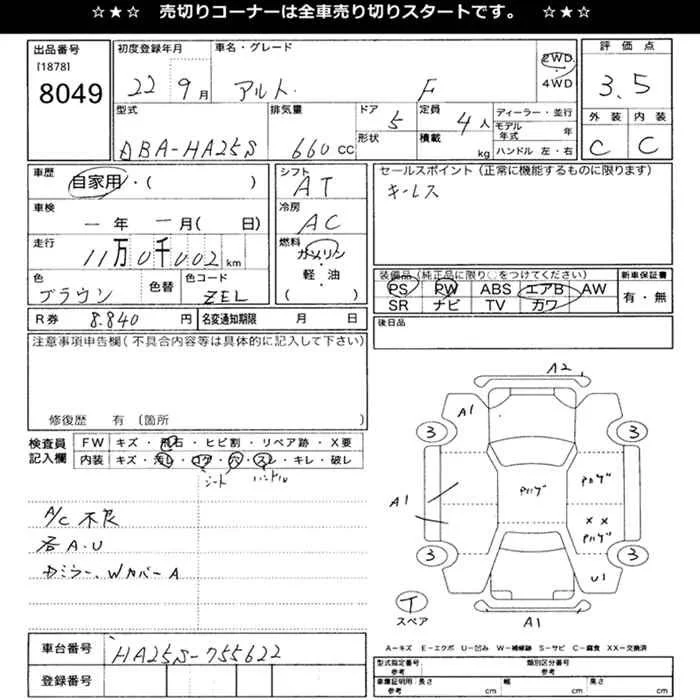 ☆★☆ 売切りコーナーは全車売り切りスタートです。 ☆★☆
出品番号
[1878]
8049
初度登録年月
22 9月
車名・グレード
アルト F
2WD
4WD
評価点
3.5
外装 内装
C C
型式
DBA-HA25S
排気量
660cc
ドア
5
形状
定員
4人
積載
kg
ディーラー・並行
モデル年式 年
ハンドル 左・右
車歴
自家用・( )
車検
一年 一月( 日)
走行
11万0千002km
色
ブラウン
色替
色コード
ZEL
シフト
AT
冷房
AC
燃料
ガソリン
・
軽・油
( )
セールスポイント(正常に機能するものに限ります)
キーレス
装備品(純正品に限り○をつけてください)
PS PW ABS エアB AW
SR ナビ TV カワ
新車保証書
有・無
後日品
R券 8.840 円
名変通知期限 月 日
注意事項申告欄(不具合内容等は具体的に記入して下さい)
修復歴 有(箇所
検査員記入欄
FW キズ・飛石・ヒビ割・リペア跡・X要
内装 キズ・汚レ・コゲ・穴・スレ・キレ・破レ
シート ハンドル
A/C 不良
各A・U
Wカバー A
車台番号
HA25S-755622
登録番号
A2
A1
3 3
Pハゲ
Pハゲ
A1
××
Pハゲ
3 3
U1
T
スペア
A1
A=キズ E=エクボ U=凹み W=補修跡 S=サビ C=腐食 XX=交換済
型式指定番号 参考
類別区分番号 参考
車庫証明用 参考
長さ cm
幅 cm
高さ cm